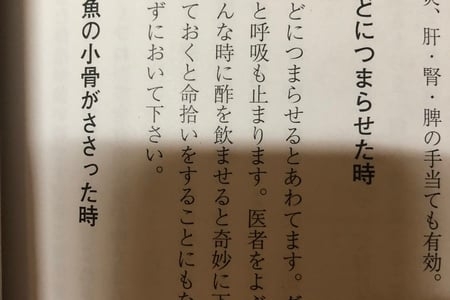 、肝・腎・脾の手当ても有効。
どにつまらせた時
どにつまらせるとあわてます。
と呼吸も止まります。医者をよぶ
んな時に酢を飲ませると奇妙に下
ておくと命拾いをすることにもな
ずにおいて下さい。
魚の小骨がささった時